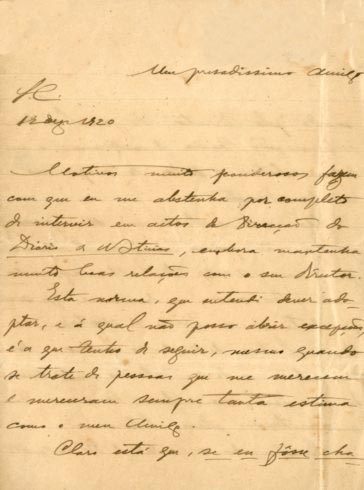 Meu presadissimo Amigo
S/C.
12 Dez 1920
Motivos muito ponderosos fazem
com que eu me abstenha por completo
de intervir em actos de Direcção do
Diario de Noticias, embora mantenha
muito boas relações com o seu Director.
Esta norma, que entendi dever ado-
ptar, e á qual não posso abrir excepção,
é a que tenho de seguir, mesmo quando
se trate de pessoas que me merecem
e mereceram sempre tanta estima
como o meu Amigo.
Claro está que, se eu fôsse cha